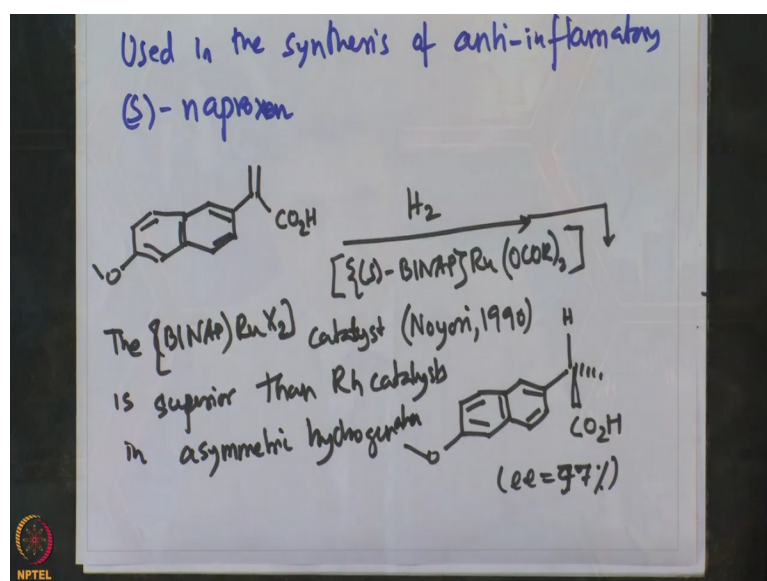 Used in the synthesis of anti-inflamatory
(S)-naproxen
CO₂H
H₂
O
[{(S)-BINAP}Ru(OCOR)₂]
The {BINAP)RuX₂] catalyst (Noyori, 1990)
is superior than Rh catalysts
in asymmetric hydrogenation
H
CO₂H
O
(ee=97%)
NPTEL